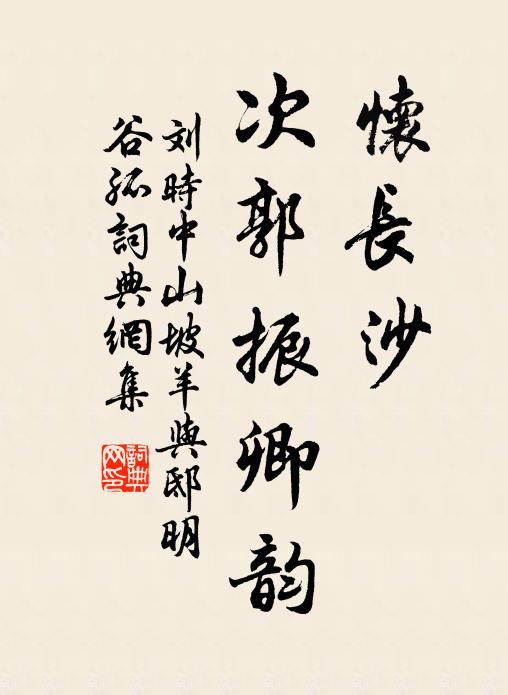 懷長沙
次郭振卿韵
刘時中山坡羊與邸明
谷孤詞典網集
詞典网印